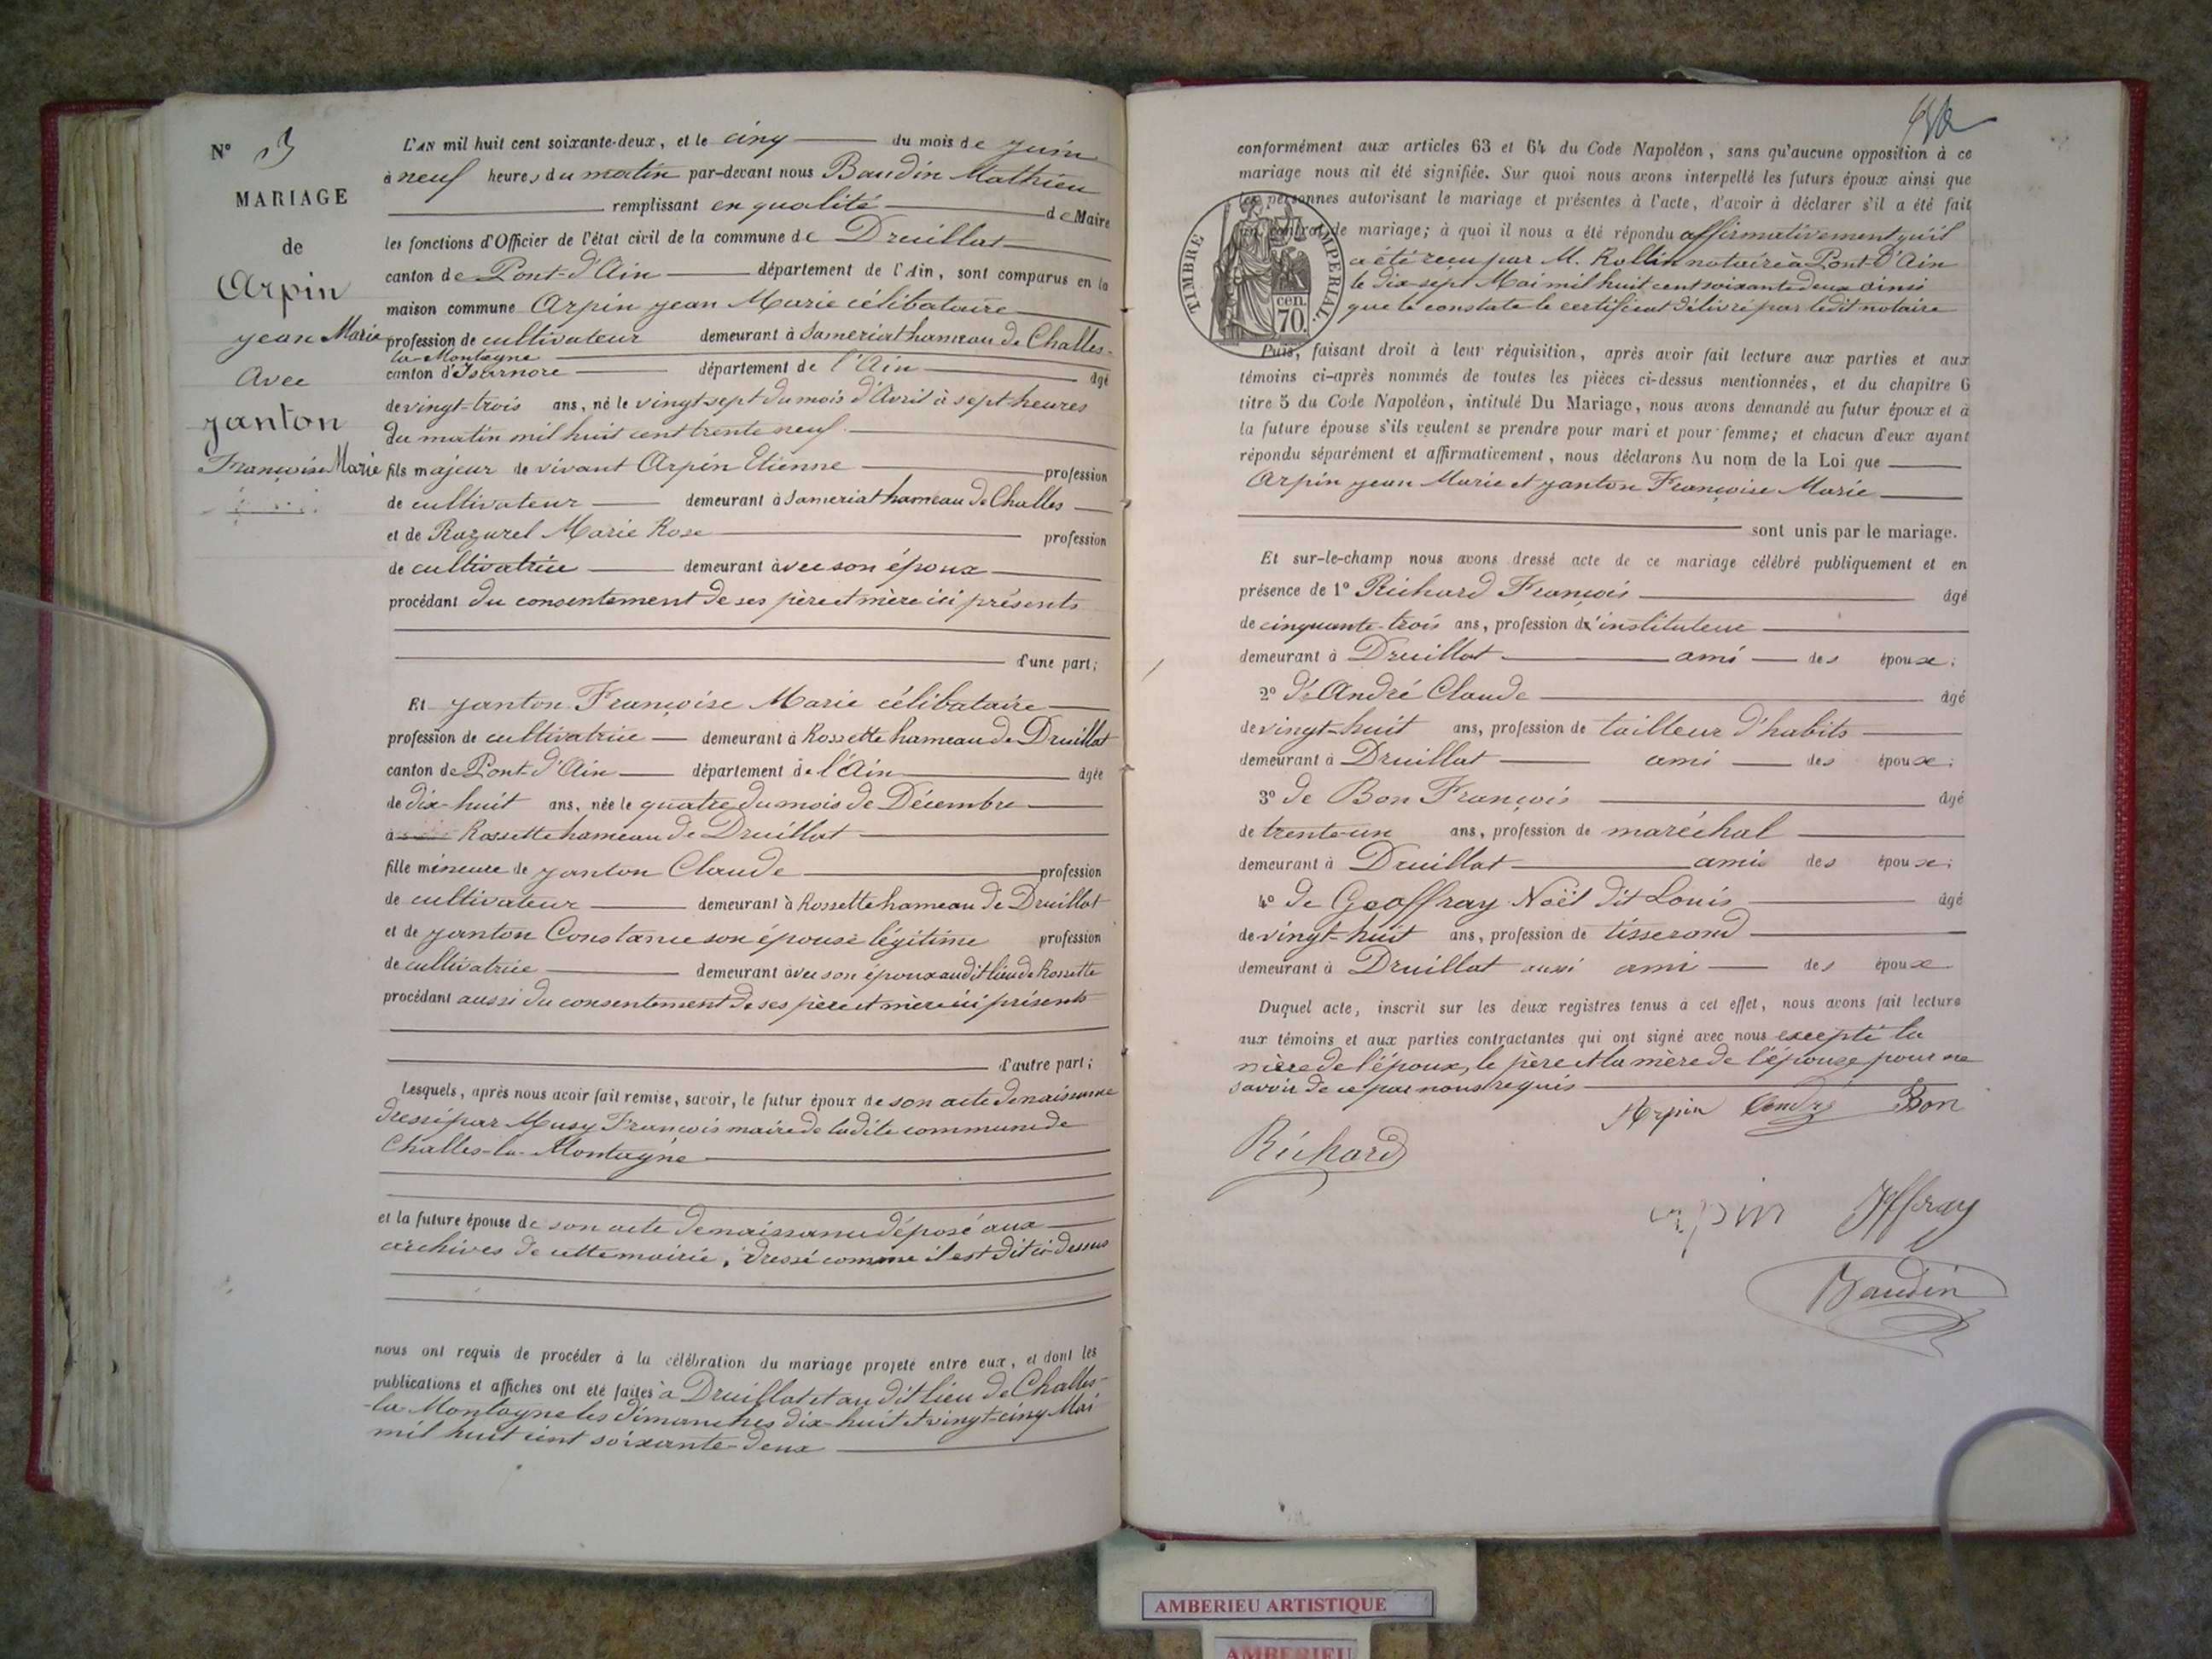 N° 3
MARIAGE
de
Arpin
jean Marie
Avec
janton
Françoise Marie
L'AN mil huit cent soixante-deux, et le cinq du mois de juin
à neuf heures du matin par-devant nous Baudin Mathieu
remplissant en qualité de Maire
les fonctions d'Officier de l'état civil de la commune de Druillat
canton de Pont-d'Ain département de l'Ain, sont comparus en la
maison commune Arpin jean Marie célibataire
profession de cultivateur demeurant à Samériat hameau de Challes-
la-Montagne
canton d'Isernore département de l'Ain âgé
de vingt-trois ans, né le vingt sept du mois d'Avril à sept heures
du matin mil huit cent trente neuf.
fils majeur de vivant Arpin Etienne profession
de cultivateur demeurant à Samériat hameau de Challes
et de Ruzurel Marie Rose profession
de cultivatrice demeurant avec son époux
procédant du consentement de ses père et mère ici présents
d'une part;
Et janton Françoise Marie célibataire
profession de cultivatrice demeurant à Rossette hameau de Druillat
canton de Pont-d'Ain département de l'Ain âgée
de dix-huit ans, née le quatre du mois de Décembre
à Rossette hameau de Druillat
fille mineure de janton Claude profession
de cultivateur demeurant à Rossette hameau de Druillat
et de janton Constance son épouse légitime profession
de cultivatrice demeurant avec son époux audit lieu de Rossette
procédant aussi du consentement de ses père et mère ici présents
d'autre part;
Lesquels, après nous avoir fait remise, savoir, le futur époux de son acte de naissance
dressé par Musy François maire de ladite commune de
Challes-la-Montagne
et la future épouse de son acte de naissance déposé aux
archives de cette mairie, dressé comme il est dit ci-dessus
nous ont requis de procéder à la célébration du mariage projeté entre eux, et dont les
publications et affiches ont été faites à Druillat et au dit lieu de Challes-
-la-Montagne les dimanches dix-huit et vingt-cinq Mai
mil huit cent soixante-deux
conformément aux articles 63 et 64 du Code Napoléon, sans qu'aucune opposition à ce
mariage nous ait été signifiée. Sur quoi nous avons interpellé les futurs époux ainsi que
les personnes autorisant le mariage et présentes à l'acte, d'avoir à déclarer s'il a été fait
un contrat de mariage; à quoi il nous a été répondu affirmativement qu'il
a été reçu par M. Rollin notaire à Pont-d'Ain
le dix-sept Mai mil huit cent soixante deux ainsi
que le constate le certificat délivré par ledit notaire
TIMBRE IMPERIAL.
70 cen.
Puis, faisant droit à leur réquisition, après avoir fait lecture aux parties et aux
témoins ci-après nommés de toutes les pièces ci-dessus mentionnées, et du chapitre 6
titre 5 du Code Napoléon, intitulé Du Mariage, nous avons demandé au futur époux et à
la future épouse s'ils veulent se prendre pour mari et pour femme; et chacun d'eux ayant
répondu séparément et affirmativement, nous déclarons Au nom de la Loi que
Arpin jean Marie et janton Françoise Marie
sont unis par le mariage.
Et sur-le-champ nous avons dressé acte de ce mariage célébré publiquement et en
présence de 1° Richard François âgé
de cinquante-trois ans, profession d'instituteur
demeurant à Druillat ami des époux;
2° d'André Claude âgé
de vingt-huit ans, profession de tailleur d'habits
demeurant à Druillat ami des époux;
3° de Bon François âgé
de trente-un ans, profession de maréchal
demeurant à Druillat ami des époux;
4° de Geoffray Noël dit Louis âgé
de vingt-huit ans, profession de tisserand
demeurant à Druillat aussi ami des époux
Duquel acte, inscrit sur les deux registres tenus à cet effet, nous avons fait lecture
aux témoins et aux parties contractantes qui ont signé avec nous excepté la
mère de l'époux, le père et la mère de l'épouse pour ne
savoir de ce par nous requis
Arpin André Bon
Richard
arpin Jffray
Baudin
AMBERIEU ARTISTIQUE
AMBERIEU